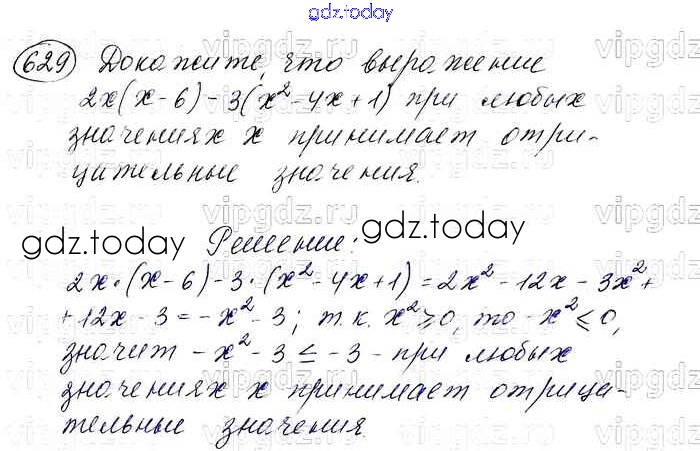 gdz.today
629 Докажите, что выражение
2x(x-6)-3(x²-4x+1) при любых
значениях x принимает отри-
цательные значения.
gdz.today Решение: gdz.today
2x·(x-6)-3·(x²-4x+1)=2x²-12x-3x²+
+12x-3=-x²-3; т.к. x²≥0, то -x²≤0,
значит -x²-3≤-3 - при любых
значениях x принимает отрица-
тельные значения.